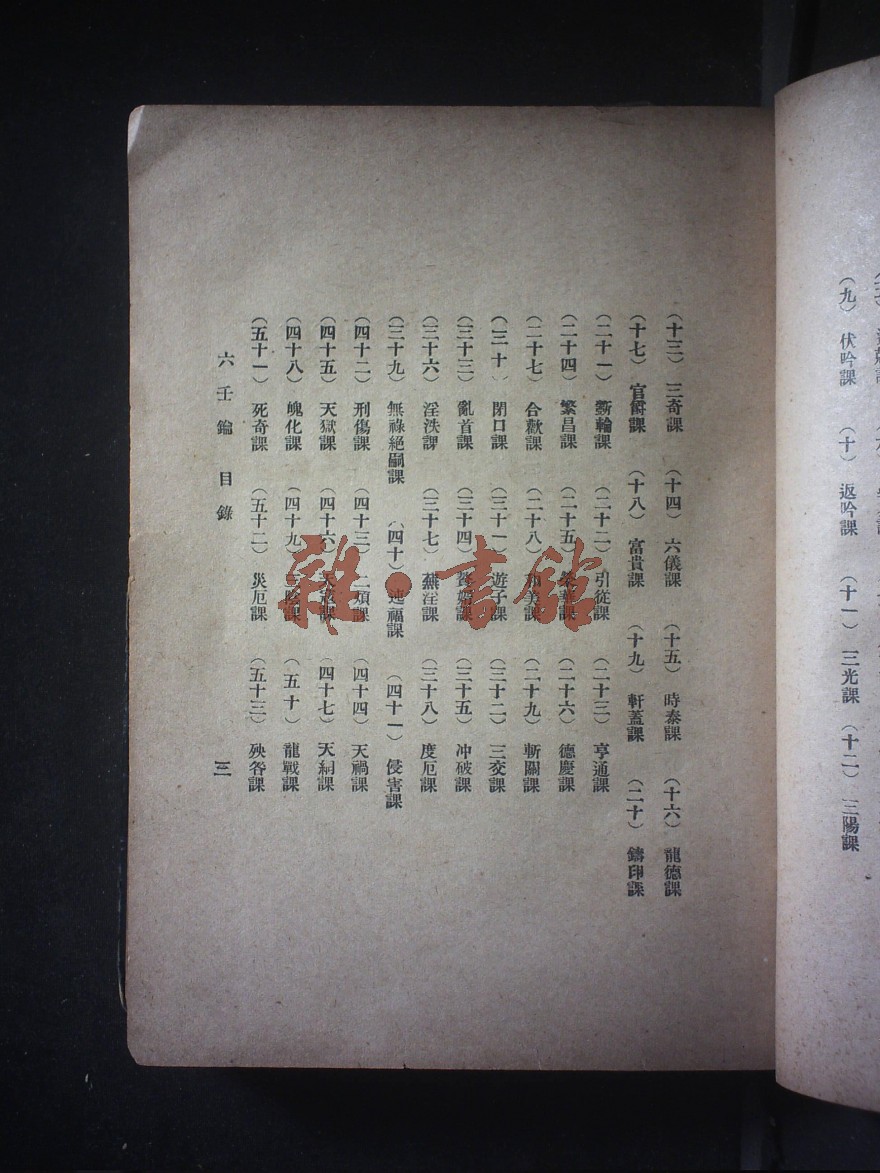 （九）　伏吟課　（十）　返吟課　（十一）　三光課　（十二）　三陽課
（十三）　三奇課　（十四）　六儀課　（十五）　時泰課　（十六）　龍德課
（十七）　官爵課　（十八）　富貴課　（十九）　軒蓋課　（二十）　鑄印課
（二十一）　斵輪課　（二十二）　引從課　（二十三）　亨通課
（二十四）　繁昌課　（二十五）　榮華課　（二十六）　德慶課
（二十七）　合歡課　（二十八）　和美課　（二十九）　斬關課
（三十）　閉口課　（三十一）　遊子課　（三十二）　三交課
（三十三）　亂首課　（三十四）　贅婿課　（三十五）　冲破課
（三十六）　淫泆課　（三十七）　蕪淫課　（三十八）　度厄課
（三十九）　無祿絕嗣課　（四十）　迍福課　（四十一）　侵害課
（四十二）　刑傷課　（四十三）　二煩課　（四十四）　天禍課
（四十五）　天獄課　（四十六）　天寇課　（四十七）　天網課
（四十八）　魄化課　（四十九）　三陰課　（五十）　龍戰課
（五十一）　死奇課　（五十二）　災厄課　（五十三）　殃咎課
六壬鑰　目錄　三
雜·書館